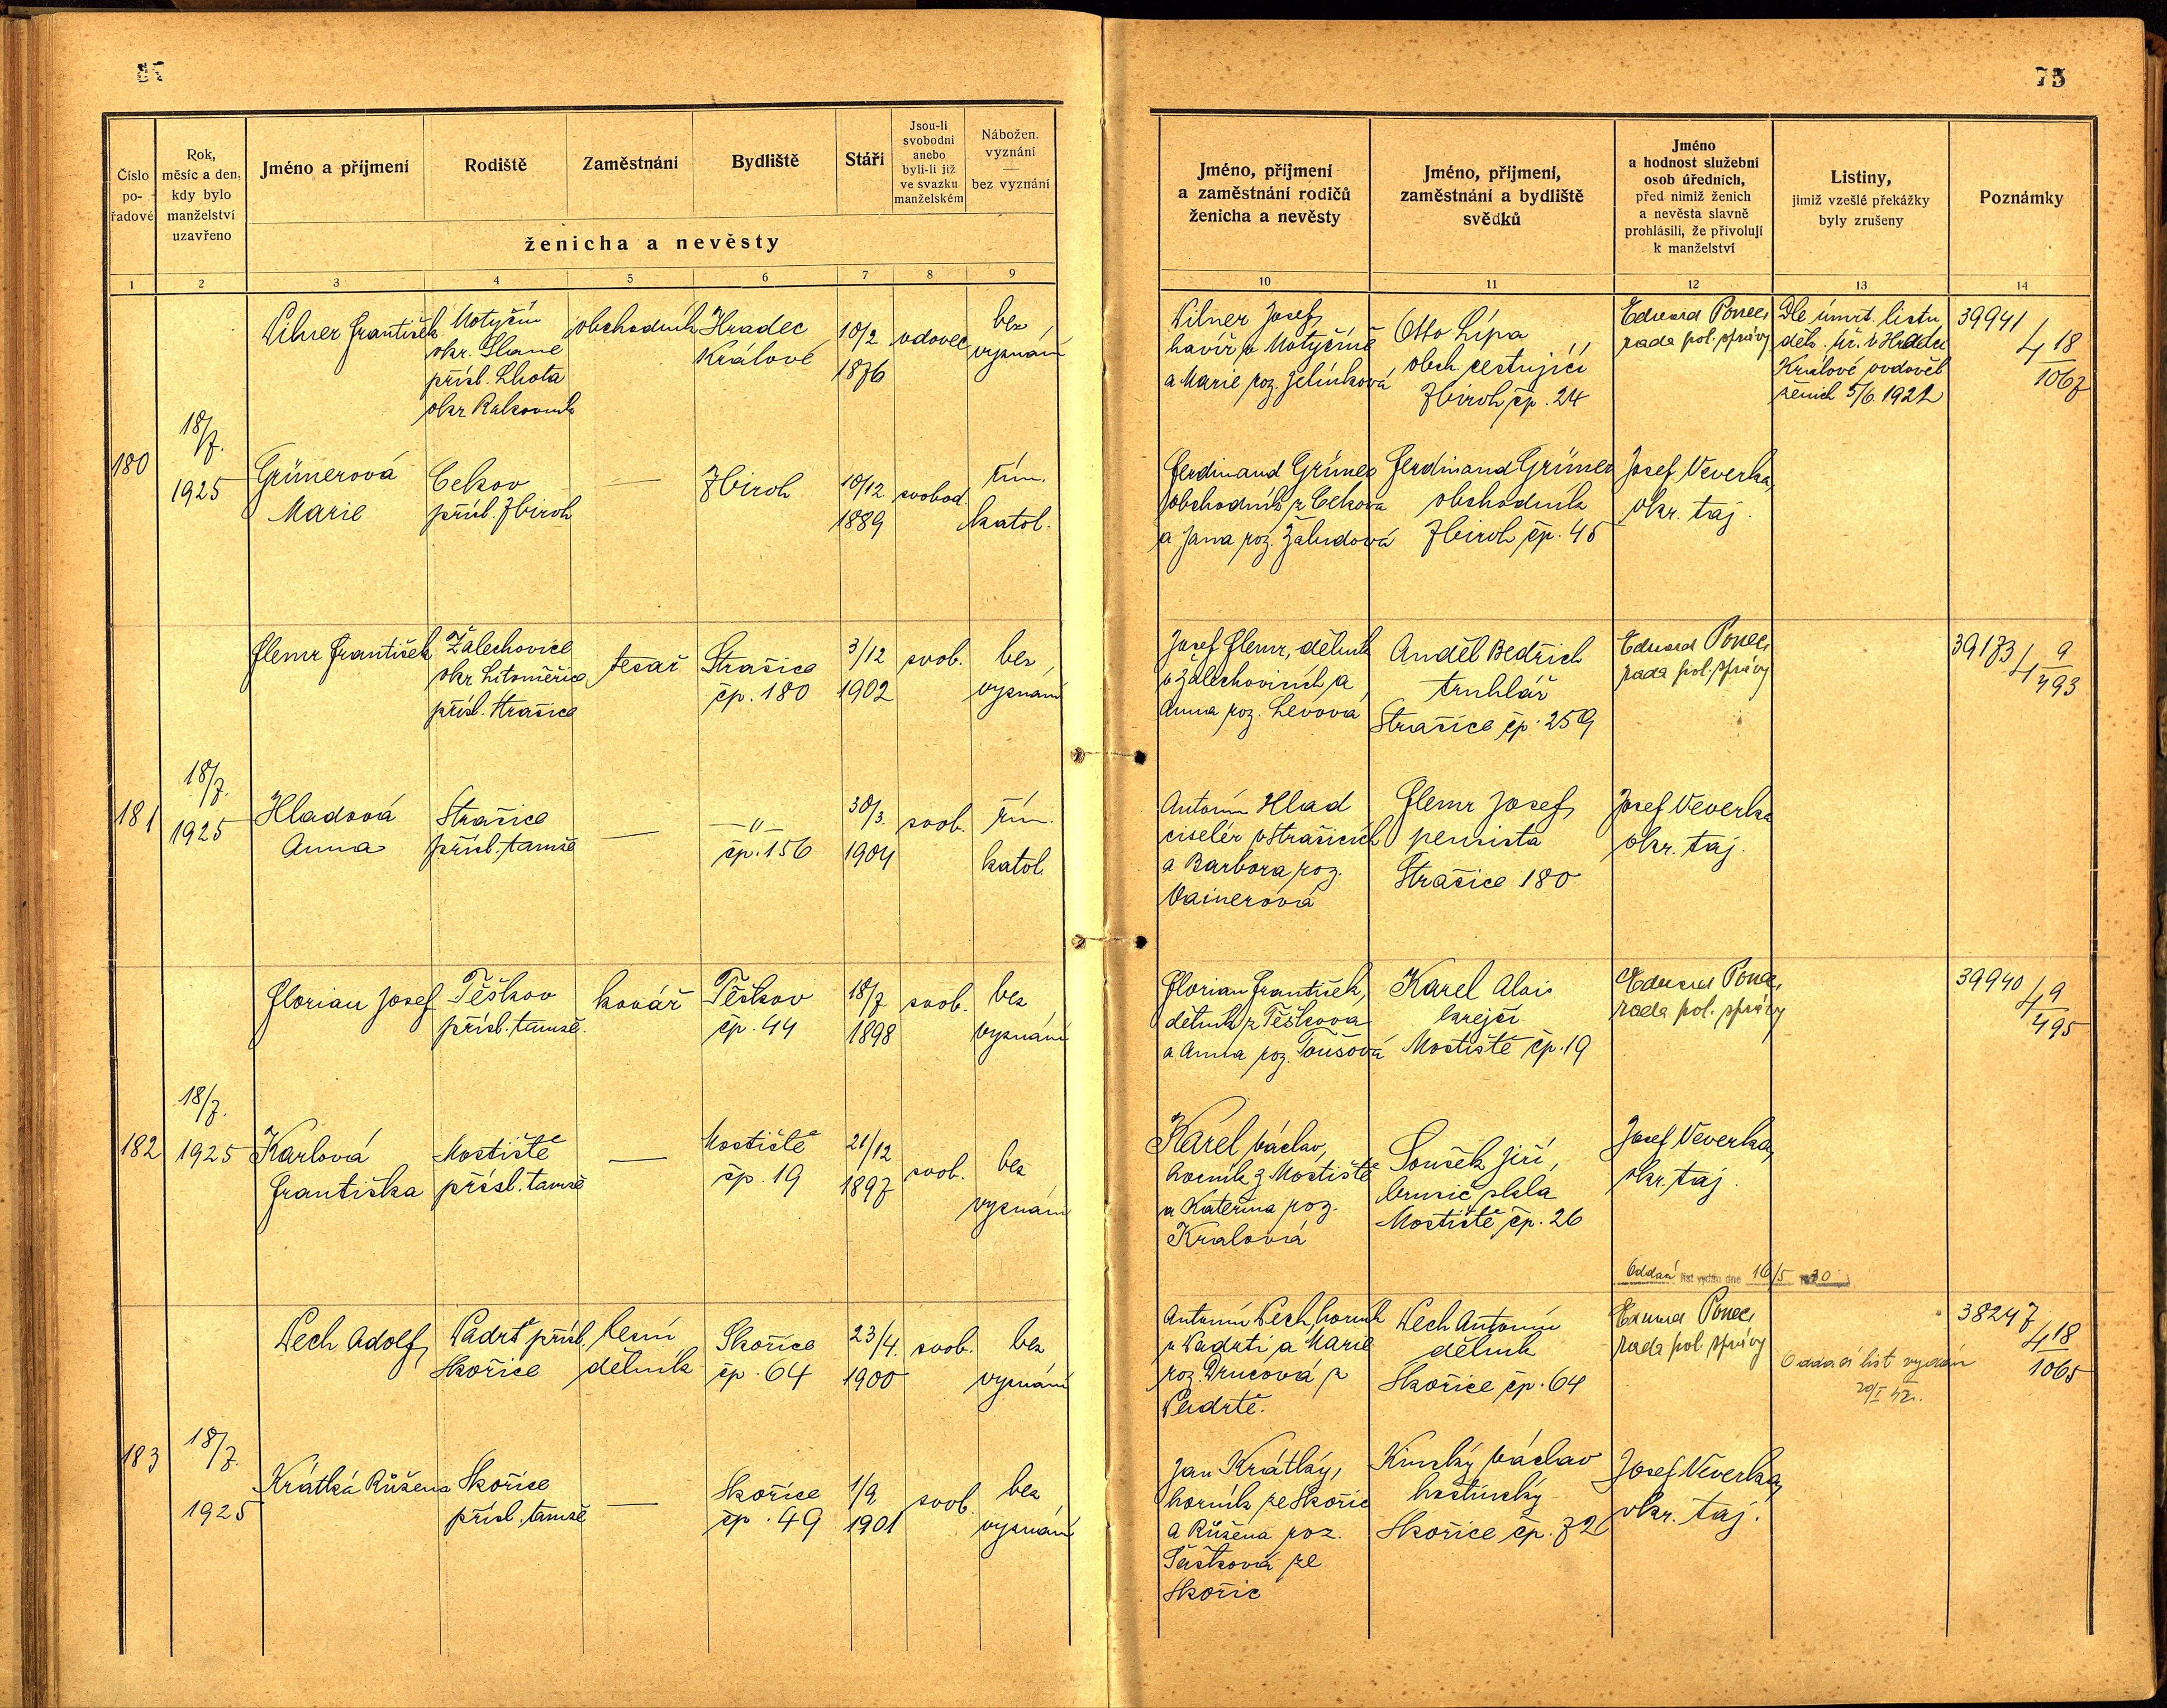 75
Číslo
po-
řadové
Rok,
měsíc a den,
kdy bylo
manželství
uzavřeno
Jméno a příjmení
Rodiště
Zaměstnání
Bydliště
Stáří
Jsou-li
svobodni
anebo
byli-li již
ve svazku
manželském
Nábožen.
vyznání
—
bez vyznání
ženicha a nevěsty
1 2 3 4 5 6 7 8 9
Jméno, příjmení
a zaměstnání rodičů
ženicha a nevěsty
Jméno, příjmení,
zaměstnání a bydliště
svědků
Jméno
a hodnost služební
osob úředních,
před nimiž ženich
a nevěsta slavně
prohlásili, že přivolují
k manželství
Listiny,
jimiž vzešlé překážky
byly zrušeny
Poznámky
10 11 12 13 14
180
18/7.
1925
František
Motyčín
okr. Slané
přísl. Lhota
okr Rakovník
obchodník
Hradec
Králové
10/2
1876
vdovec
bez
vyznání
Josef,
havíř v Motyčíně
a Marie roz. Jelínková
Otto Lípa
obch. cestující
Zbiroh čp. 24
Eduard Ponec,
rada pol. správy
Dle úmrt. listu
děk. úř. v Hradci
Králové ovdověl
ženich 5/6. 1921
39941
4 18/1067
Grünerová
Marie
Cekov
přísl. Zbiroh
—
Zbiroh
10/12
1889
svobod
řím.
katol.
Ferdinand Grüner
obchodník z Cekova
a Jana roz. Žaludová
Ferdinand Grüner
obchodník
Zbiroh čp. 45
Josef Veverka,
okr. taj.
181
18/7.
1925
Flemr František
Žalechovice
okr Litoměřice
přísl. Strašice
tesař
Strašice
čp. 180
3/12
1902
svob.
bez
vyznání
Josef Flemr, dělník
v Žalechovicích a
Anna roz. Levová
Anděl Bedřich
truhlář
Strašice čp. 259
Eduard Ponec,
rada pol. správy
39173
4 9/493
Hladová
Anna
Strašice
přísl. tamže
—
—"—
čp. 156
30/3.
1904
svob.
řím.
katol.
Antonín Hlad
ciselér v Strašicích
a Barbora roz.
Vainerová
Flemr Josef,
pensista
Strašice 180
Josef Veverka
okr. taj.
182
18/7.
1925
Florian Josef
Těškov
přísl. tamže.
kovář
Těškov
čp. 44
18/7
1898
svob.
bez
vyznání
Florian František,
dělník z Těškova
a Anna roz. Toušová
Karel Alois
krejčí
Mostiště čp. 19
Eduard Ponec,
rada pol. správy
39940
4 9/495
Karlová
Františka
Mostiště
přísl. tamže
—
Mostiště
čp. 19
21/12
1897
svob.
bez
vyznání
Karel Václav,
horník z Mostiště
a Kateřina roz.
Kralová
Souček Jiří,
brusič skla
Mostiště čp. 26
Josef Veverka,
okr. taj.
Oddací list vydán dne 16/5 1930
183
18/7.
1925
Adolf,
Padrť přísl.
Skořice
lesní
dělník
Skořice
čp. 64
23/4.
1900
svob.
bez
vyznání
Antonín horník
v Padrti a Marie
roz.
Padrtě.
Antonín
dělník
Skořice čp. 64
Eduard Ponec,
rada pol. správy
Oddací list vydán
38247
4 18/1065
Krátká Růžena
Skořice
přísl. tamže
—
Skořice
čp. 49
1/9
1901
svob.
bez
vyznání
Jan Krátký,
horník ze Skořic
a Růžena roz.
ze
Skořic
Kinský Václav
hostinský
Skořice čp. 72
Josef Veverka,
okr. taj.